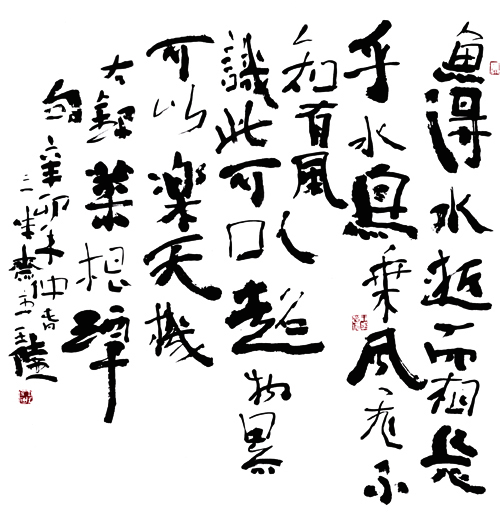 魚得水逝而相忘
乎水鳥乘風飛不
知有風
識此可以超物累
可以樂天機
右錄菜根譚
句辛卯秋仲書
齋主